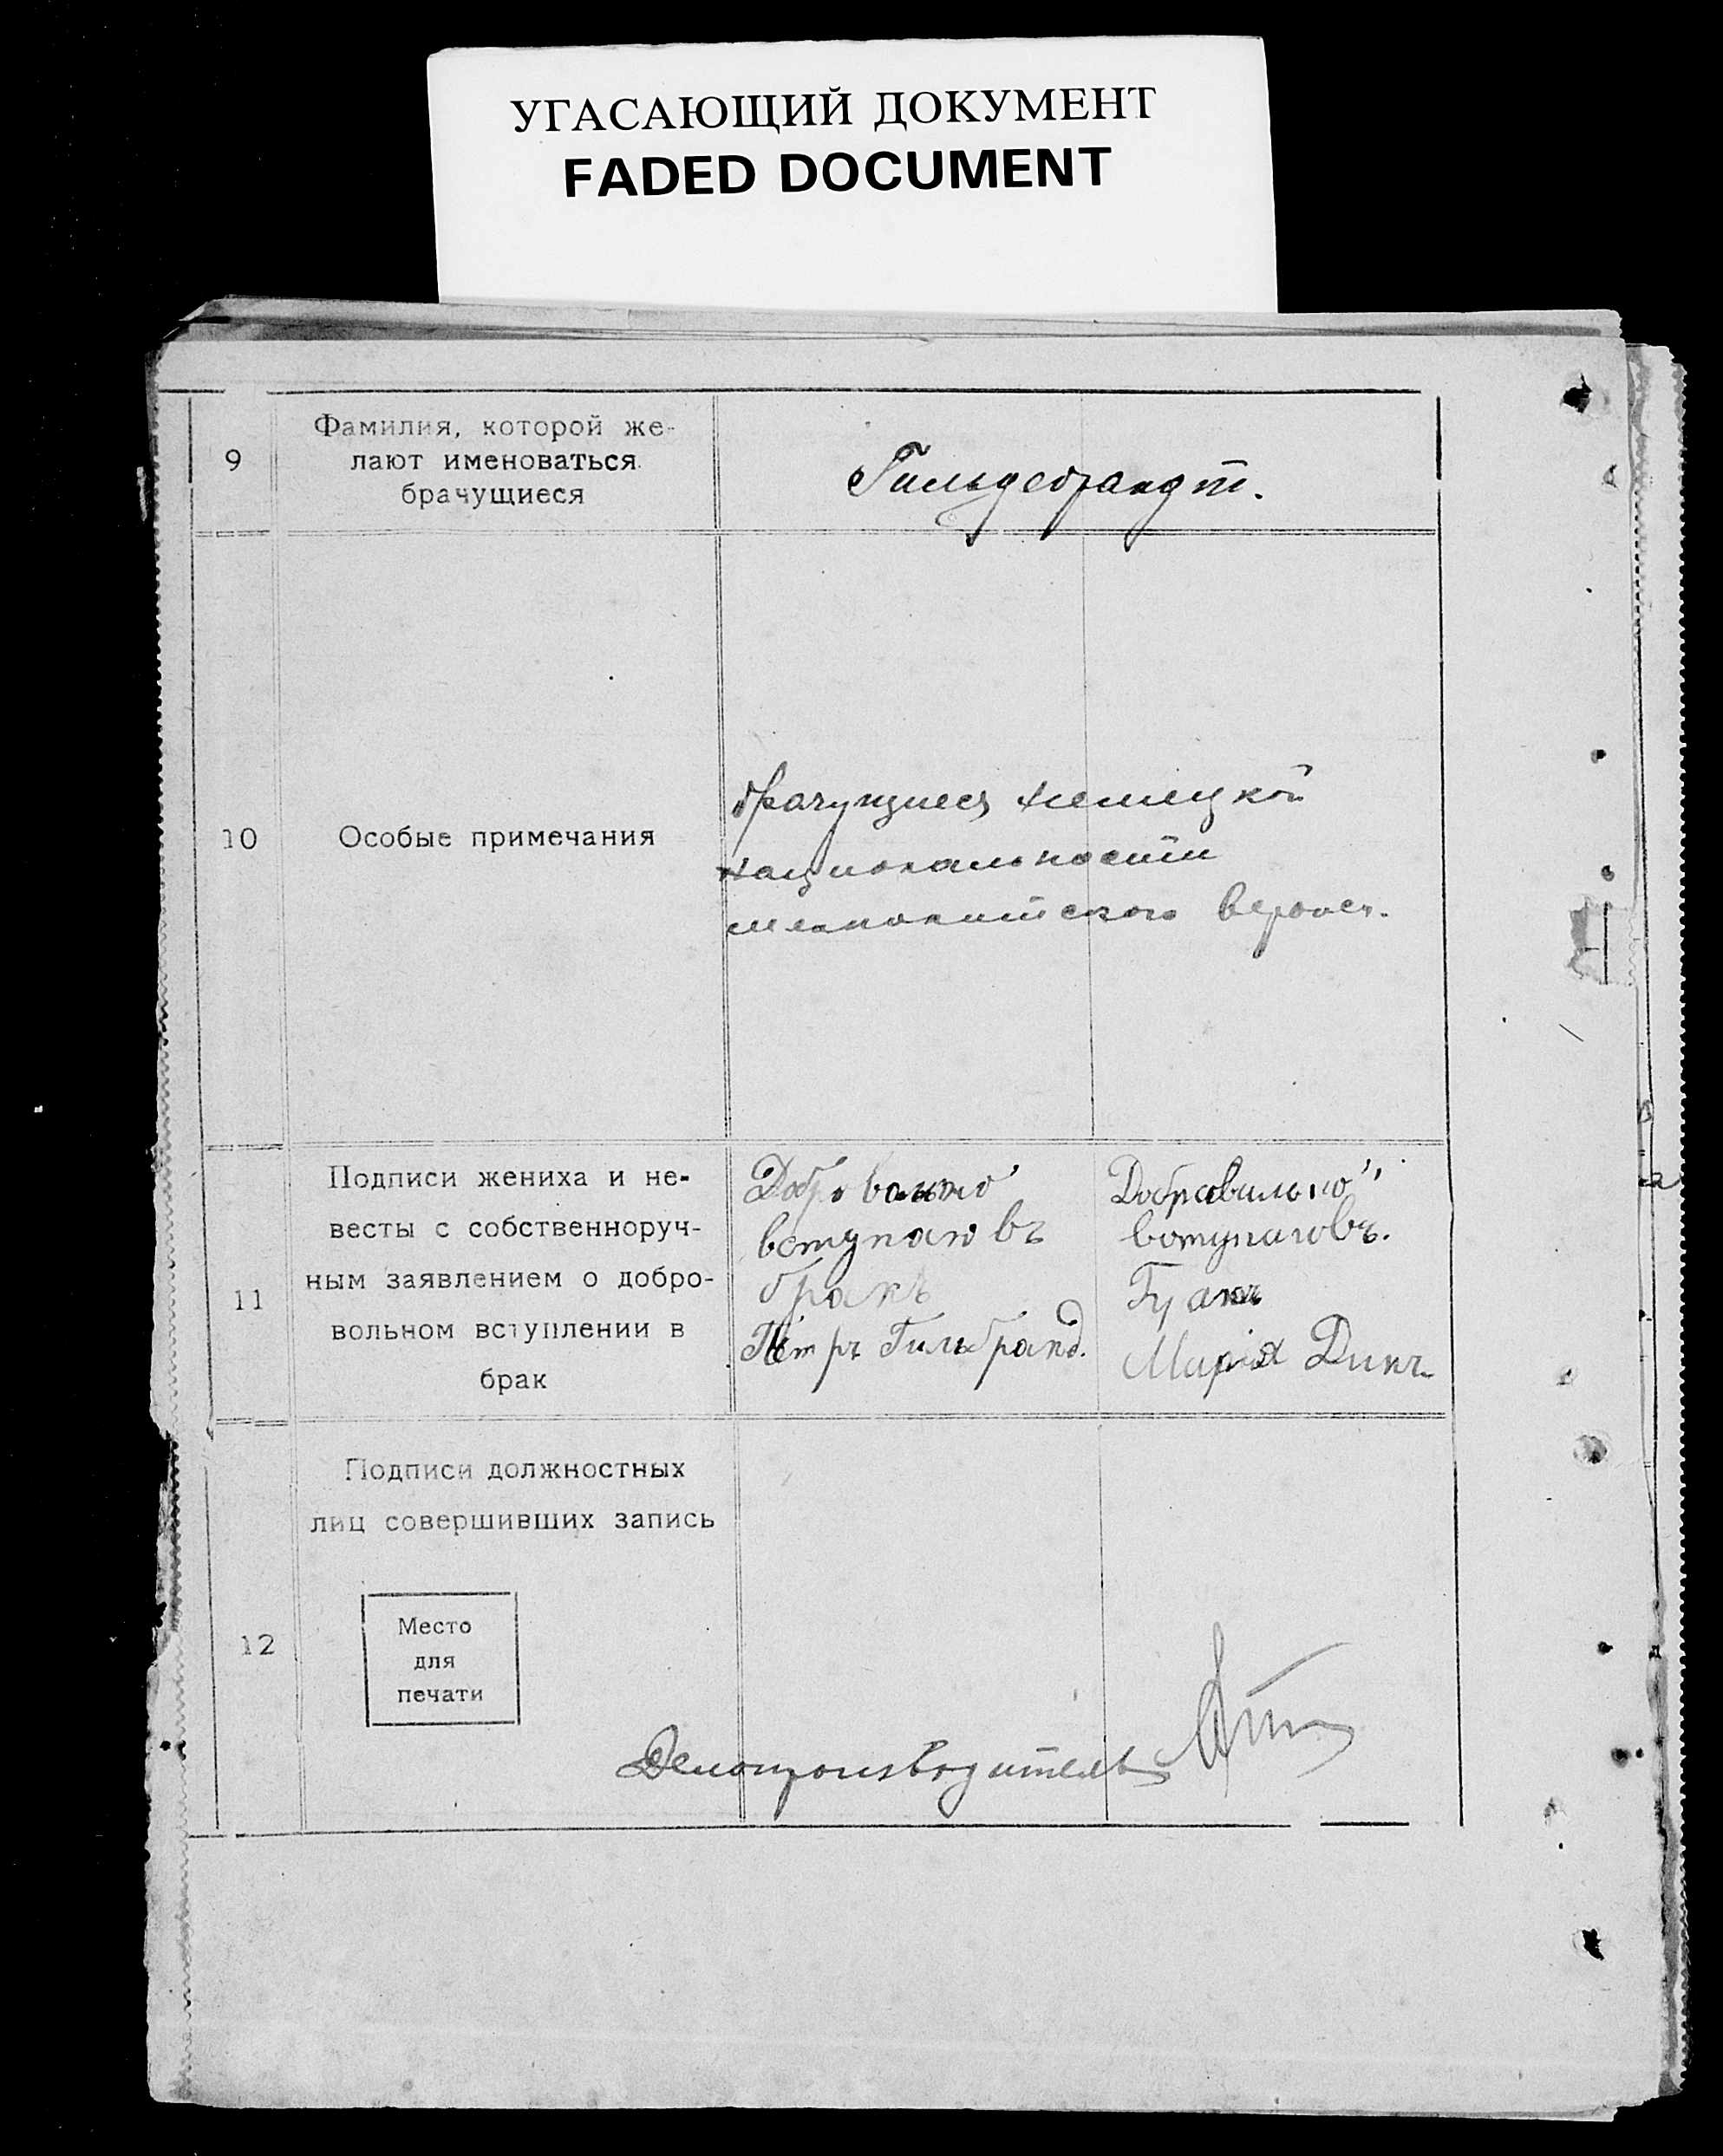 УГАСАЮЩИЙ ДОКУМЕНТ
FADED DOCUMENT
9
Фамилия, которой же-
лают именоваться
брачущиеся
Гильдебрандт.
10
Особые примечания
брачущиеся немецкой
национальности
менонитского вероисп.
11
Подписи жениха и не-
весты с собственноруч-
ным заявлением о добро-
вольном вступлении в
брак
Добровольно
вступаю въ
бракъ
Петръ Гильбранд.
Добравильно
вотупаювъ.
Марія Дикъ
12
Подписи должностных
лиц совершивших запись
Место
для
печати
Делопроизводитель